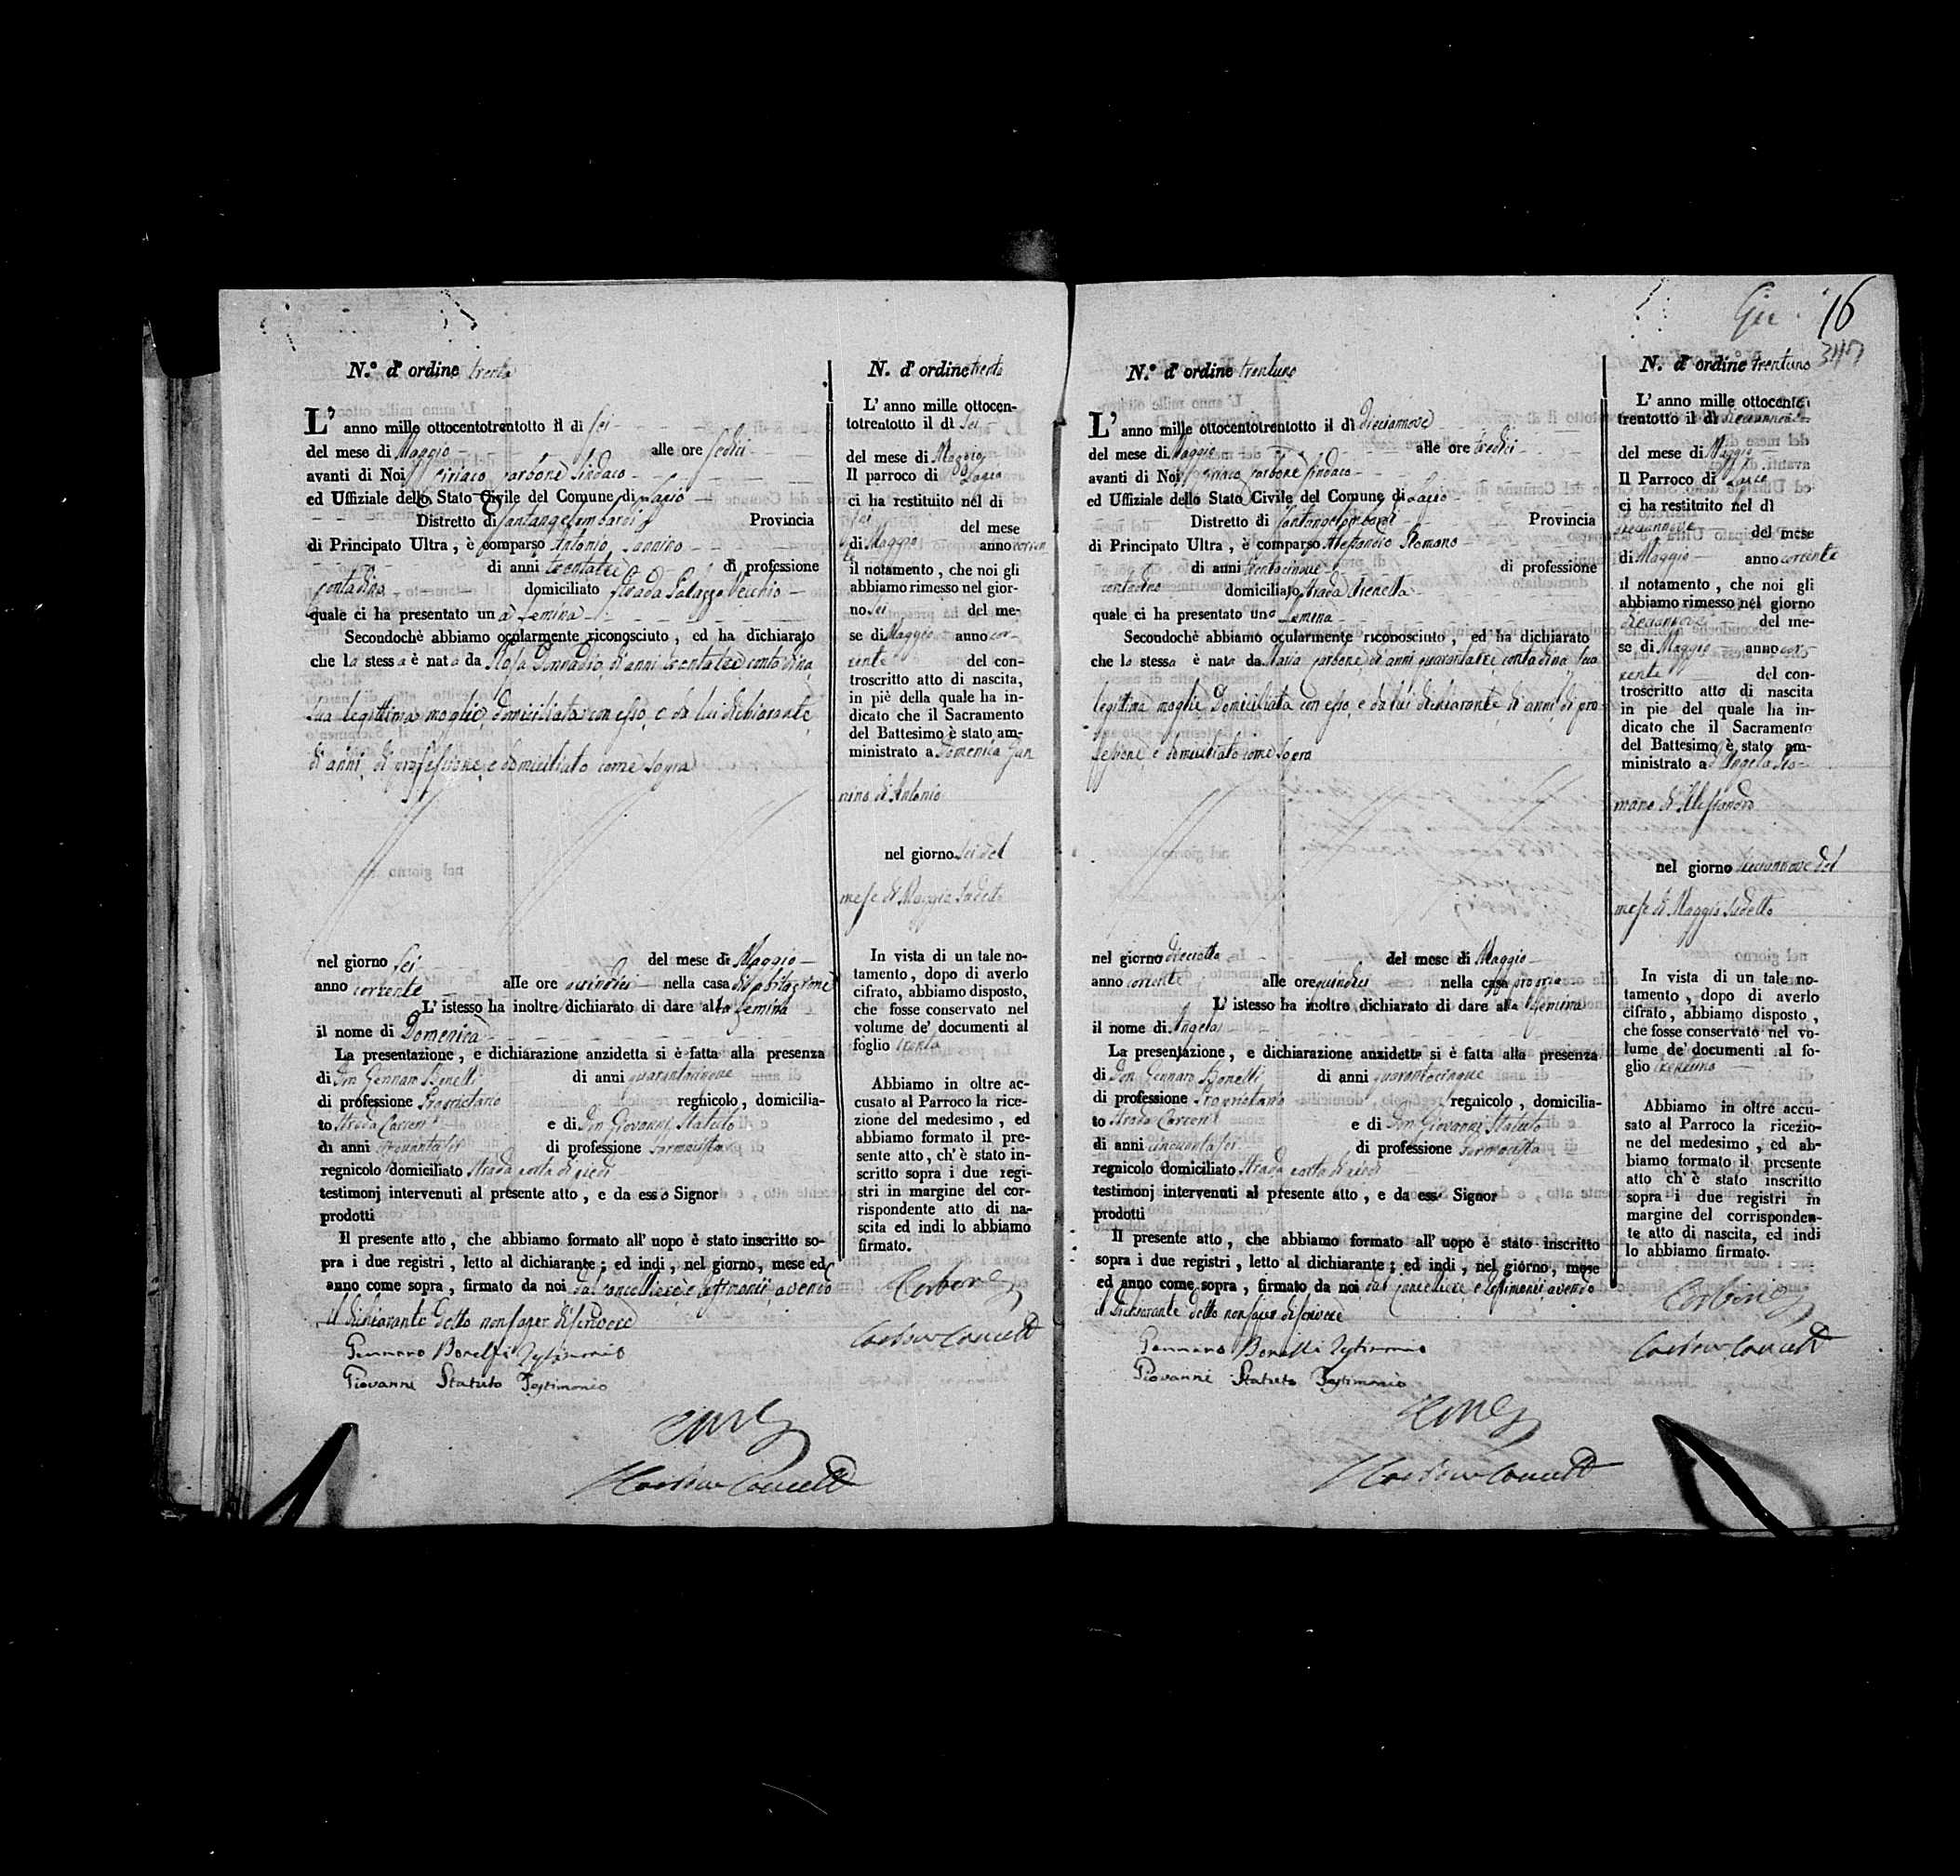 N.° d' ordine trenta
L' anno mille ottocentotrentotto il dì sei
del mese di Maggio alle ore sedici
avanti di Noi Ciriaco Carbone Sindaco
ed Uffiziale dello Stato Civile del Comune di
Distretto di Santangelombardi Provincia
di Principato Ultra , è comparso Antonio Iannino
di anni trentatre di professione
contadino domiciliato Strada Palazzo Vecchio
quale ci ha presentato una femina
Secondochè abbiamo ocularmente riconosciuto , ed ha dichiarato
che la stessa è nata da Rosa Donnadio di anni trentatre contadina
sua legittima moglie domiciliata con esso e da lui dichiarante
di anni, di professione, e domiciliato come sopra
nel giorno sei del mese di Maggio
anno corrente alle ore quindici nella casa di abitazione
L' istesso ha inoltre dichiarato di dare alla femina
il nome di Domenica
La presentazione , e dichiarazione anzidetta si è fatta alla presenza
di Don Gennaro Bonelli di anni quarantacinque
di professione Proprietario regnicolo , domicilia-
to Strada Carceri e di Don Giovanni Statuto
di anni di professione Farmacista
regnicolo domiciliato Strada costa di piedi
testimonj intervenuti al presente atto , e da esso Signor
prodotti
Il presente atto , che abbiamo formato all' uopo è stato inscritto so-
pra i due registri , letto al dichiarante ; ed indi , nel giorno, mese ed
anno come sopra , firmato da noi dal cancelliere e testimonii avendo
il dichiarante detto non saper di scrivere
Gennaro Bonelli Testimonio
Giovanni Statuto Testimonio
N. d' ordine trenta
L' anno mille ottocen-
totrentotto il dì sei
del mese di Maggio
Il parroco di
ci ha restituito nel dì
sei del mese
di Maggio anno corren
te
il notamento , che noi gli
abbiamo rimesso nel gior-
no sei del me-
se di Maggio anno cor-
rente del con-
troscritto atto di nascita,
in piè della quale ha in-
dicato che il Sacramento
del Battesimo è stato am-
ministrato a Domenica Ian
nino di Antonio
nel giorno sei del
mese di Maggio sudetto
In vista di un tale no-
tamento , dopo di averlo
cifrato, abbiamo disposto,
che fosse conservato nel
volume de' documenti al
foglio trenta
Abbiamo in oltre ac-
cusato al Parroco la rice-
zione del medesimo , ed
abbiamo formato il pre-
sente atto, ch' è stato in-
scritto sopra i due regi-
stri in margine del cor-
rispondente atto di na-
scita ed indi lo abbiamo
firmato.
Carbone
N.° d' ordine trentuno
L' anno mille ottocentotrentotto il dì diecinnove
del mese di Maggio alle ore tredici
avanti di Noi Ciriaco Carbone Sindaco
ed Uffiziale dello Stato Civile del Comune di
Distretto di Santangelombardi Provincia
di Principato Ultra , è comparso Alessandro Romano
di anni trentacinque di professione
contadino domiciliato Strada
quale ci ha presentato una femina
Secondochè abbiamo ocularmente riconosciuto , ed ha dichiarato
che la stessa è nata da Maria Carbone di anni quarantatre contadina sua
legittima moglie domiciliata con esso e da lui dichiarante di anni, di pro
fessione, e domiciliato come sopra
nel giorno dieciotto del mese di Maggio
anno corrente alle ore quindici nella casa propria
L' istesso ha inoltre dichiarato di dare alla femina
il nome di Angela
La presentazione , e dichiarazione anzidetta si è fatta alla presenza
di Don Gennaro Bonelli di anni quarantacinque
di professione Proprietario regnicolo , domicilia-
to Strada Carceri e di Don Giovanni Statuto
di anni cinquantasei di professione Farmacista
regnicolo domiciliato Strada costa di piedi
testimonj intervenuti al presente atto , e da esso Signor
prodotti
Il presente atto , che abbiamo formato all' uopo è stato inscritto
sopra i due registri , letto al dichiarante ; ed indi , nel giorno, mese
ed anno come sopra , firmato da noi dal cancelliere e testimonii avendo
il dichiarante detto non saper di scrivere
Gennaro Bonelli Testimonio
Giovanni Statuto Testimonio
16
N. d' ordine trentuno
L' anno mille ottocento
trentotto il dì diecinnove
del mese di Maggio
Il Parroco di
ci ha restituito nel dì
diecinnove del mese
di Maggio anno corrente
il notamento , che noi gli
abbiamo rimesso nel giorno
diecinnove del me-
se di Maggio anno cor-
rente del con-
troscritto atto di nascita
in pie del quale ha in-
dicato che il Sacramento
del Battesimo è stato am-
ministrato ad Angela Ro-
mano di Alessandro
nel giorno diecinnove del
mese di Maggio sudetto
In vista di un tale no-
tamento , dopo di averlo
cifrato , abbiamo disposto ,
che fosse conservato nel vo-
lume de' documenti al fo-
glio trentuno
Abbiamo in oltre accu-
sato al Parroco la ricezio-
ne del medesimo , ed ab-
biamo formato il presente
atto ch' è stato inscritto
sopra i due registri in
margine del corrisponden-
te atto di nascita, ed indi
lo abbiamo firmato.
Carbone